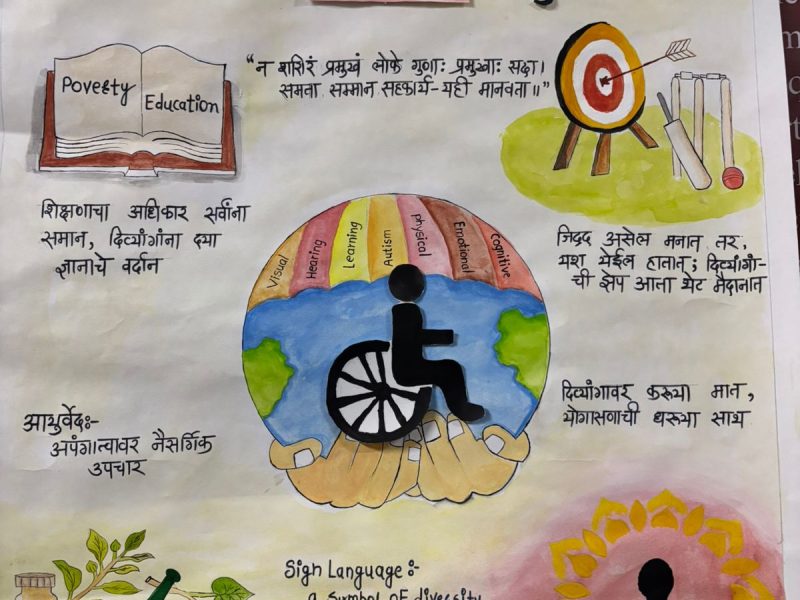 Poverty
Education
“न शरिरं प्रमुखं लोके गुणाः प्रमुखाः सदा।
समता सम्मान सहकार्य-यही मानवता॥”
शिक्षणाचा अधिकार सर्वांना
समान, दिव्यांगांना द्या
ज्ञानाचे वरदान
Visual
Hearing
Learning
Autism
Physical
Emotional
Cognitive
जिद्द असेल मनात तर,
यश येईल हातात; दिव्यांगां-
ची झेप आता थेट मैदानात
आयुर्वेदः-
अपंगात्वावर नैसर्गिक
उपचार
दिव्यांगावर करूया मात,
योगासणाची धरूया साथ
Sign Language:-
a symbol of diversity